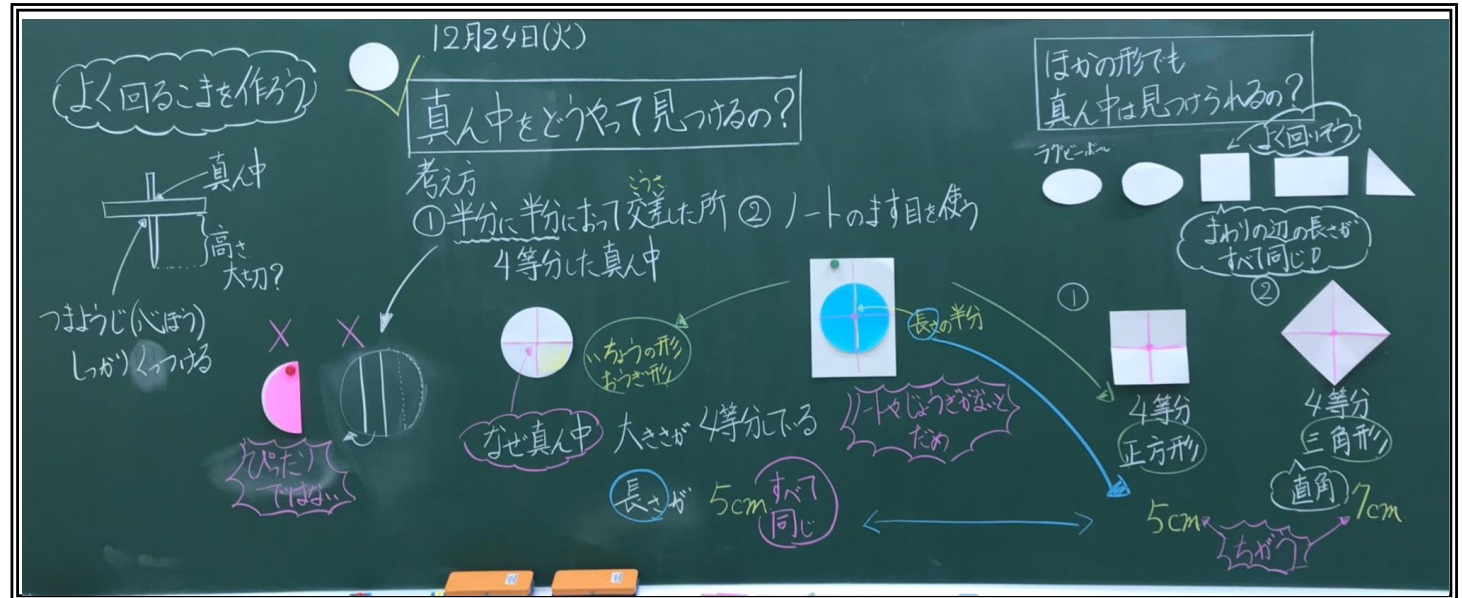 よく回るこまを作ろう
真ん中
高さ
大切?
つまようじ(心ぼう)
しっかりくっつける
12月24日(火)
真ん中をどうやって見つけるの?
考え方
①半分に半分におって交差した所
こうさ
4等分した真ん中
②ノートのます目を使う
ぴったり
ではない
いちょうの形
おうぎ形
なぜ真ん中
大きさが4等分している
長さが 5cm
すべて
同じ
長さの半分
ノートやじょうぎがないと
だめ
ほかの形でも
真ん中は見つけられるの?
よく回りそう
ラグビーボール
まわりの辺の長さが
すべて同じ
①
4等分
正方形
②
4等分
三角形
直角
5cm
7cm
ちがう
N
N